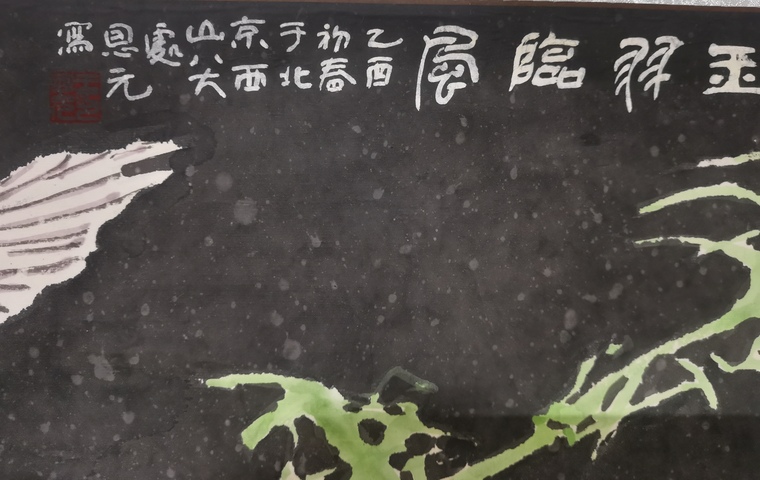 玉羽臨風
乙酉
初春
于北
京西
山八大
處
恩元
寫